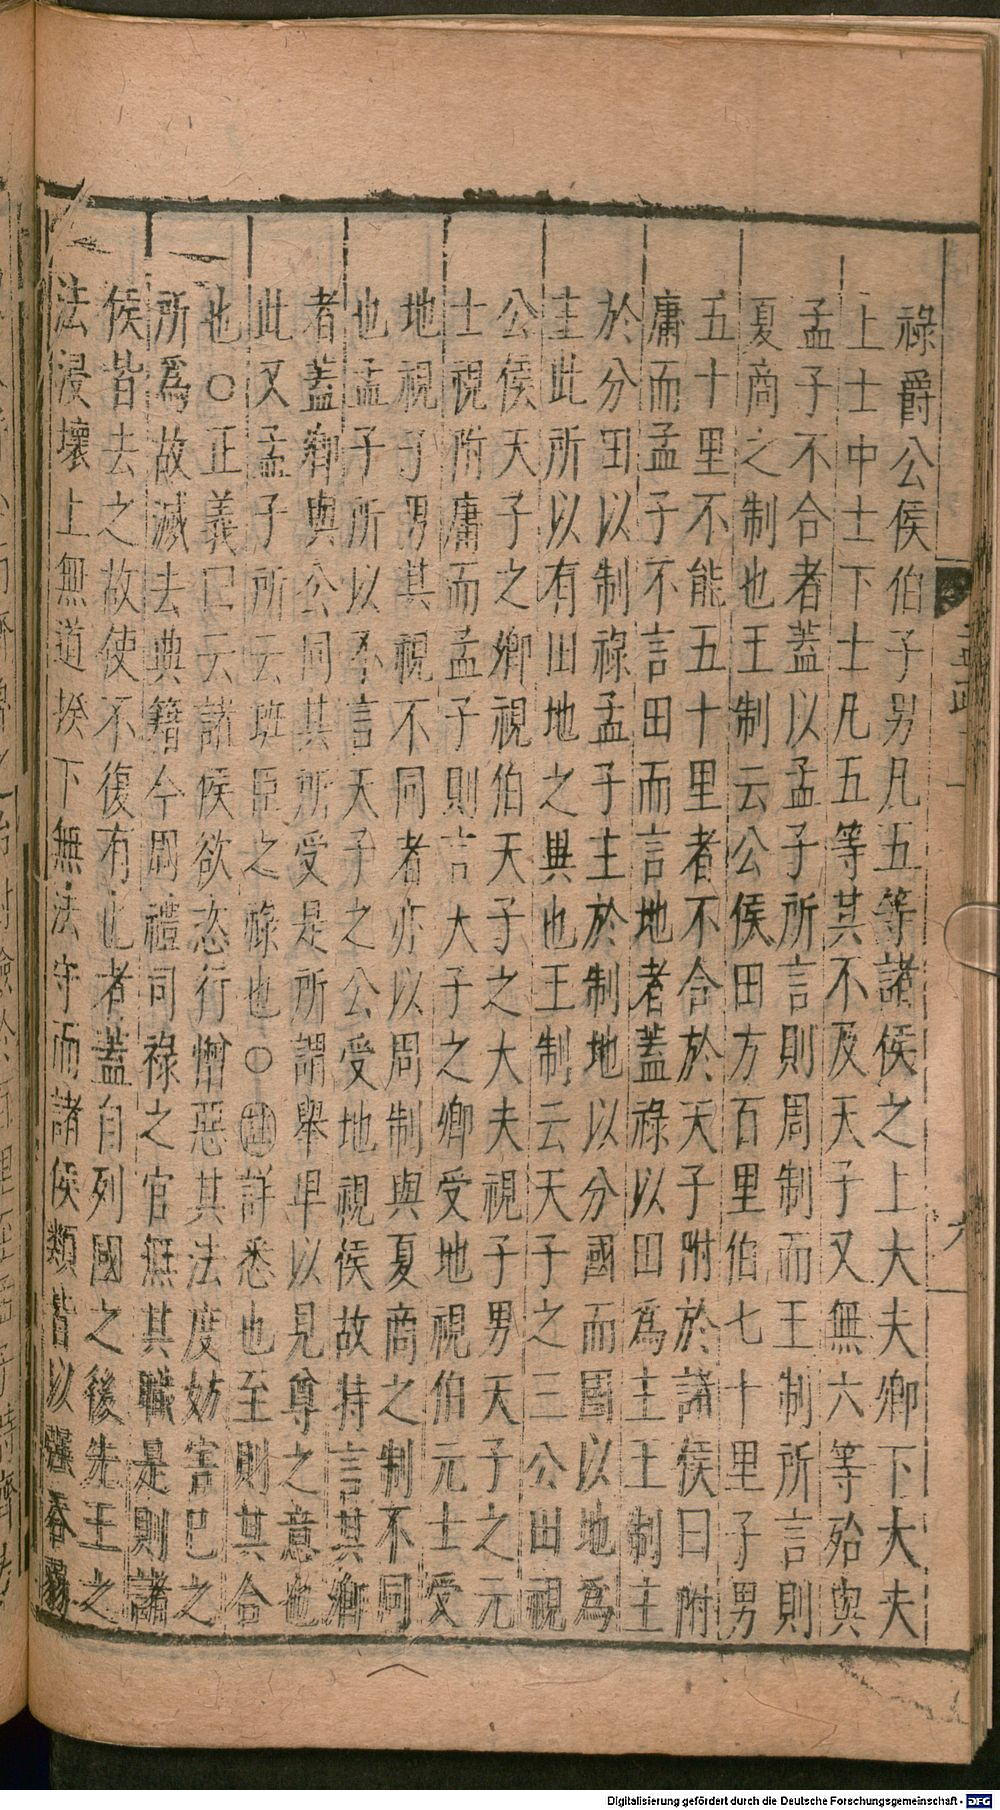 祿爵公侯伯子男凡五等諸侯之上大夫卿下大夫
上士中士下士凡五等其不及天子又無六等殆與
孟子不合者蓋以孟子所言則周制而王制所言則
夏商之制也王制云公侯田方百里伯七十里子男
五十里不能五十里者不合於天子附於諸侯曰附
庸而孟子不言田而言地者蓋祿以田爲主王制主
於分田以制祿孟子主於制地以分國而國以地爲
主此所以有田地之異也王制云天子之三公田視
公侯天子之卿視伯天子之大夫視子男天子之元
士視附庸而孟子則言大子之卿受地視伯元士受
地視子男其視不同者亦以周制與夏商之制不同
也孟子所以不言天子之公受地視侯故持言其卿
者蓋卿與公同其所受是所謂舉卑以見尊之意也
此又孟子所云班臣之祿也○註詳悉也至則其合
也○正義曰云諸侯欲恣行憎惡其法度妨害巳之
所爲故滅去典籍今周禮司祿之官無其職是則諸
侯皆去之故使不復有也者蓋自列國之後先王之
法浸壞上無道揆下無法守而諸侯類皆以彊吞弱
Digitalisierung gefördert durch die Deutsche Forschungsgemeinschaft - DFG